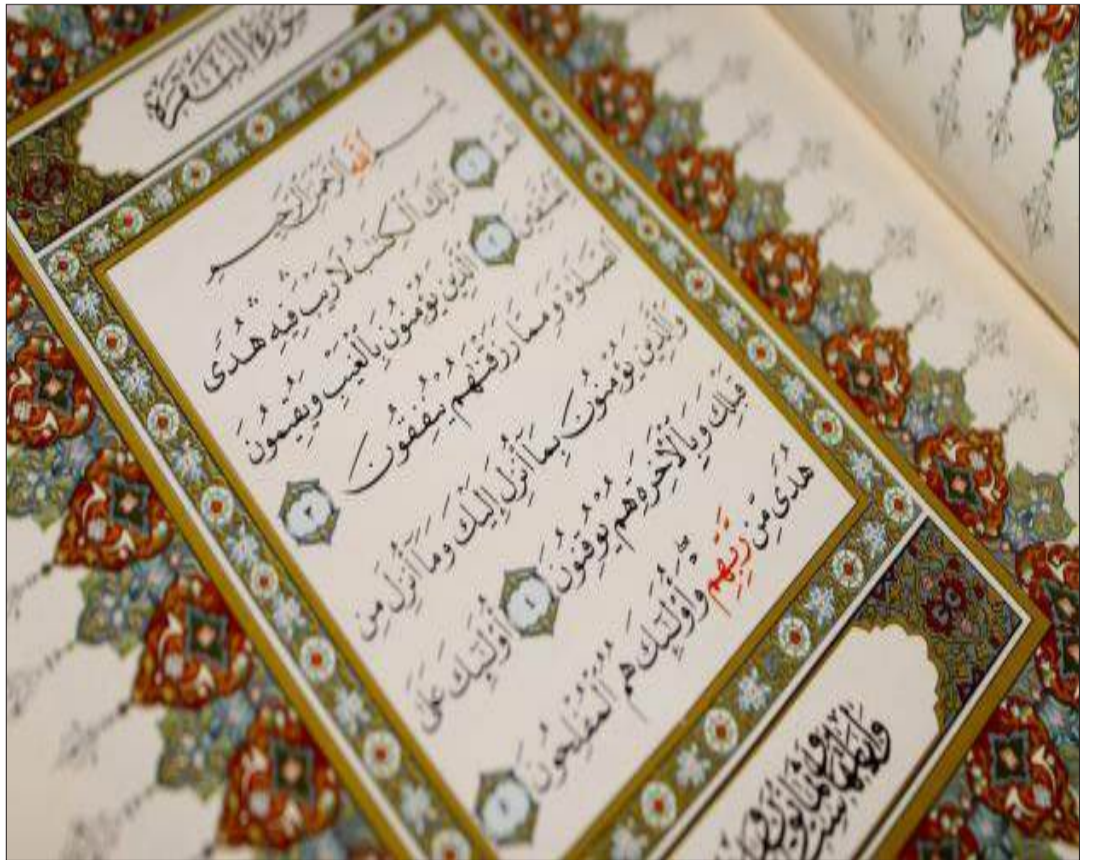 سُورَةُ الْبَقَرَةِ
بِسْمِ اللَّهِ الرَّحْمَٰنِ الرَّحِيمِ
الٓمٓ ١ ذَٰلِكَ الْكِتَٰبُ لَا رَيْبَ فِيهِ هُدًى
لِّلْمُتَّقِينَ ٢ الَّذِينَ يُؤْمِنُونَ بِالْغَيْبِ وَيُقِيمُونَ
الصَّلَوٰةَ وَمِمَّا رَزَقْنَٰهُمْ يُنفِقُونَ ٣
وَالَّذِينَ يُؤْمِنُونَ بِمَآ أُنزِلَ إِلَيْكَ وَمَآ أُنزِلَ مِن
قَبْلِكَ وَبِالْءَاخِرَةِ هُمْ يُوقِنُونَ ٤ أُو۟لَٰٓئِكَ عَلَىٰ
هُدًى مِّن رَّبِّهِمْ ۖ وَأُو۟لَٰٓئِكَ هُمُ الْمُفْلِحُونَ ٥